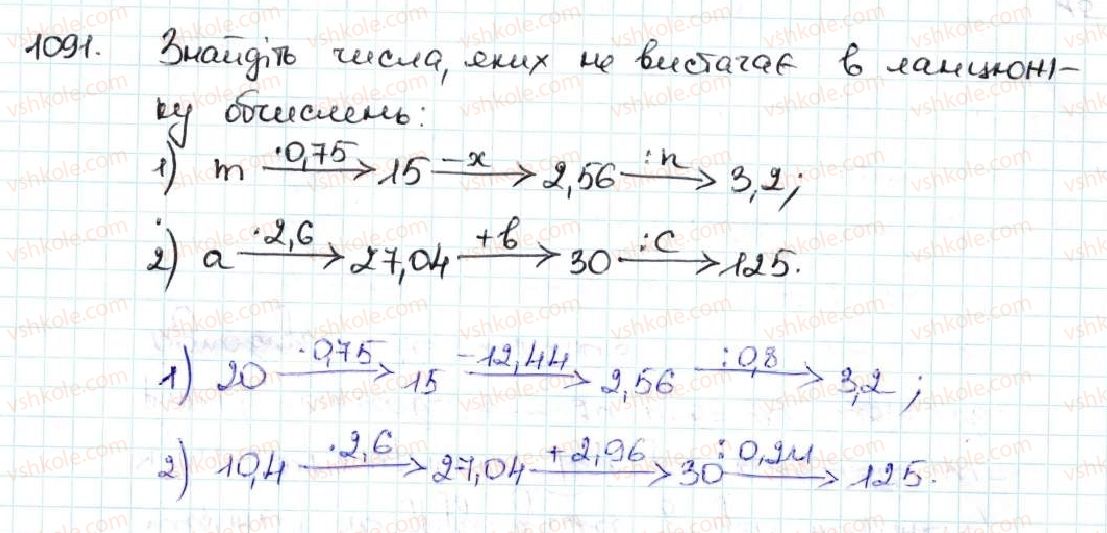 1091. Знайдіть числа, яких не вистачає в ланцюжі-
ку обчислень:
1) m —·0,75→ 15 —-x→ 2,56 —:n→ 3,2;
2) a —·2,6→ 27,04 —+b→ 30 —:c→ 125.
1) 20 —·0,75→ 15 —-12,44→ 2,56 —:0,8→ 3,2;
2) 10,4 —·2,6→ 27,04 —+2,96→ 30 —:0,24→ 125.